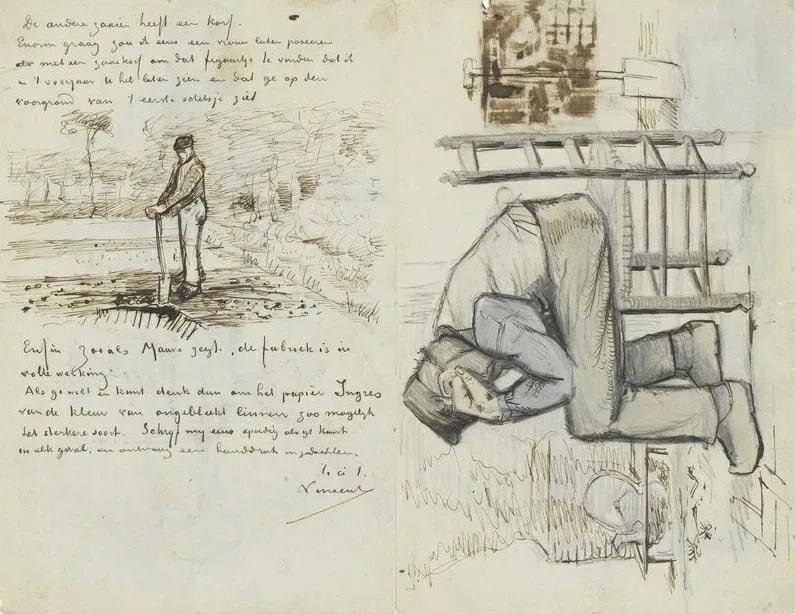 De andere zaaier heeft een korf.
Enorm graag zou ik eens een vrouw laten poseeren
met een zaaikorf om dat figuurtje te vinden dat ik
't voorjaar U heb laten zien en dat ge op den
voorgrond van 't eerste schetsje ziet
Enfin zooals Mauve zegt, „de fabriek is in
volle werking".
Als ge wilt en kunt denk dan om het papier Ingres
van de kleur van ongebleekt linnen zoo mogelijk
het sterkere soort. Schrijf mij eens spoedig als ge kunt
in elk geval, en ontvang een handdruk in gedachten.
t. à t.
Vincent